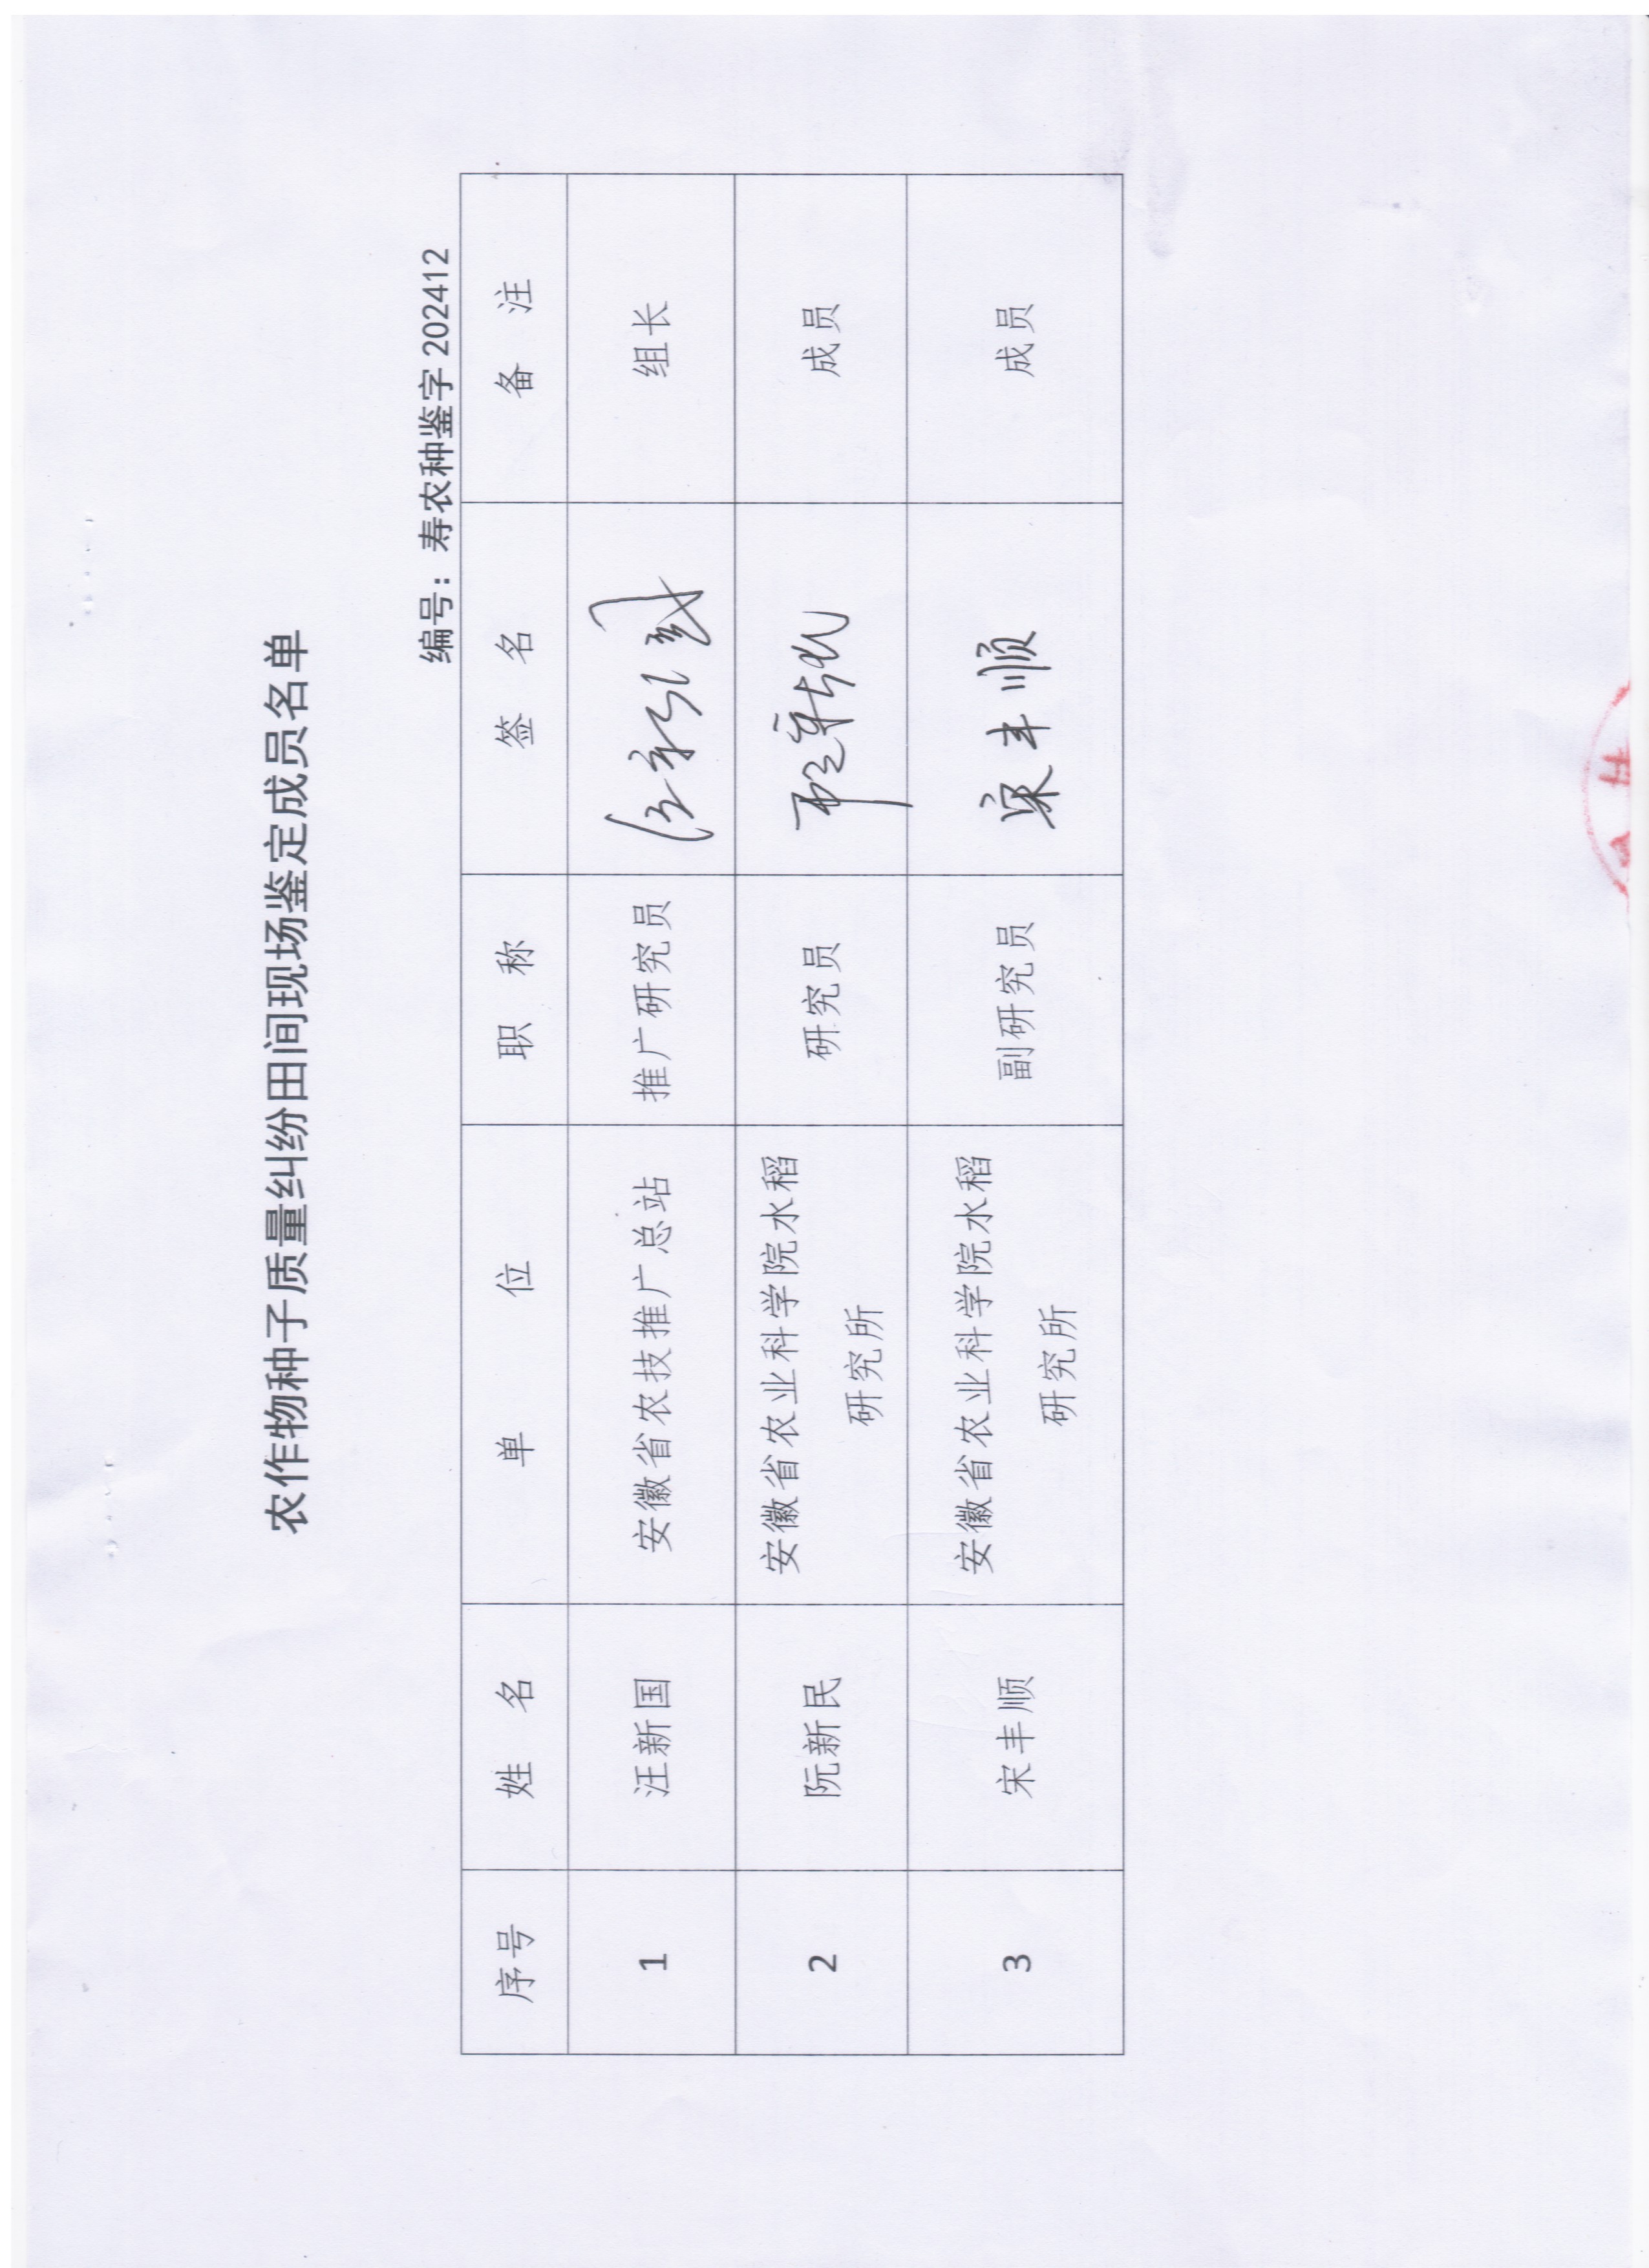 农作物种子质量纠纷田间现场鉴定成员名单
编号：寿农种鉴字 202412
序号 姓 名 单 位 职 称 签 名 备 注
1 汪新国 安徽省农技推广总站 推广研究员 汪新国 组长
2 阮新民 安徽省农业科学院水稻研究所 研究员 阮新民 成员
3 宋丰顺 安徽省农业科学院水稻研究所 副研究员 宋丰顺 成员